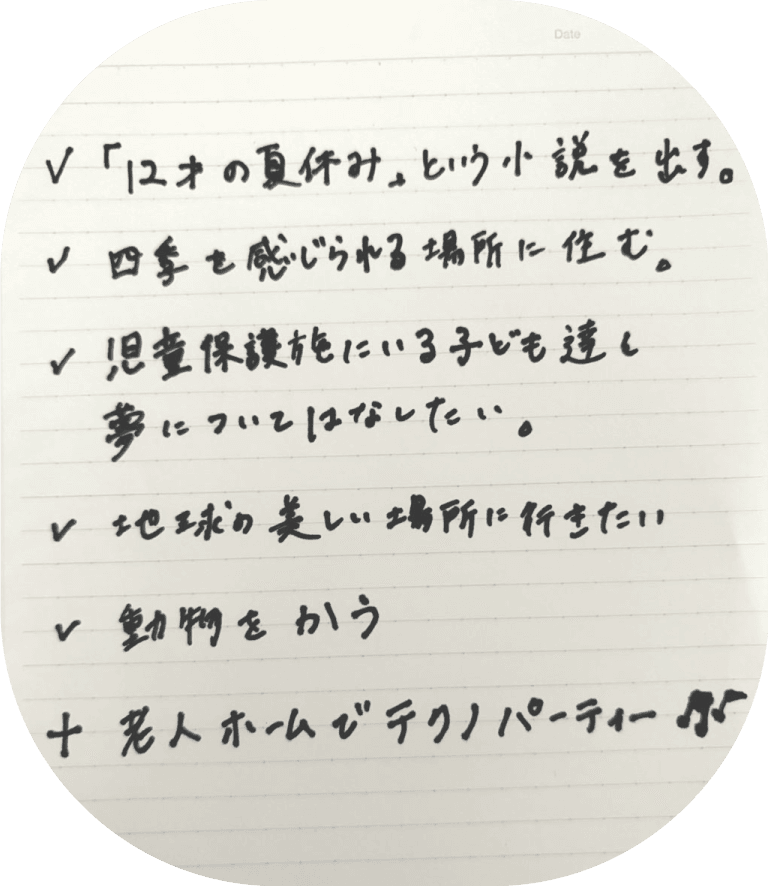 Date
✓ 「12才の夏休み」という小説を出す。
✓ 四季を感じられる場所に住む。
✓ 児童保護施にいる子ども達と
夢についてはなしたい。
✓ 地球の美しい場所に行きたい
✓ 動物をかう
+ 老人ホームでテクノパーティー ♫♪